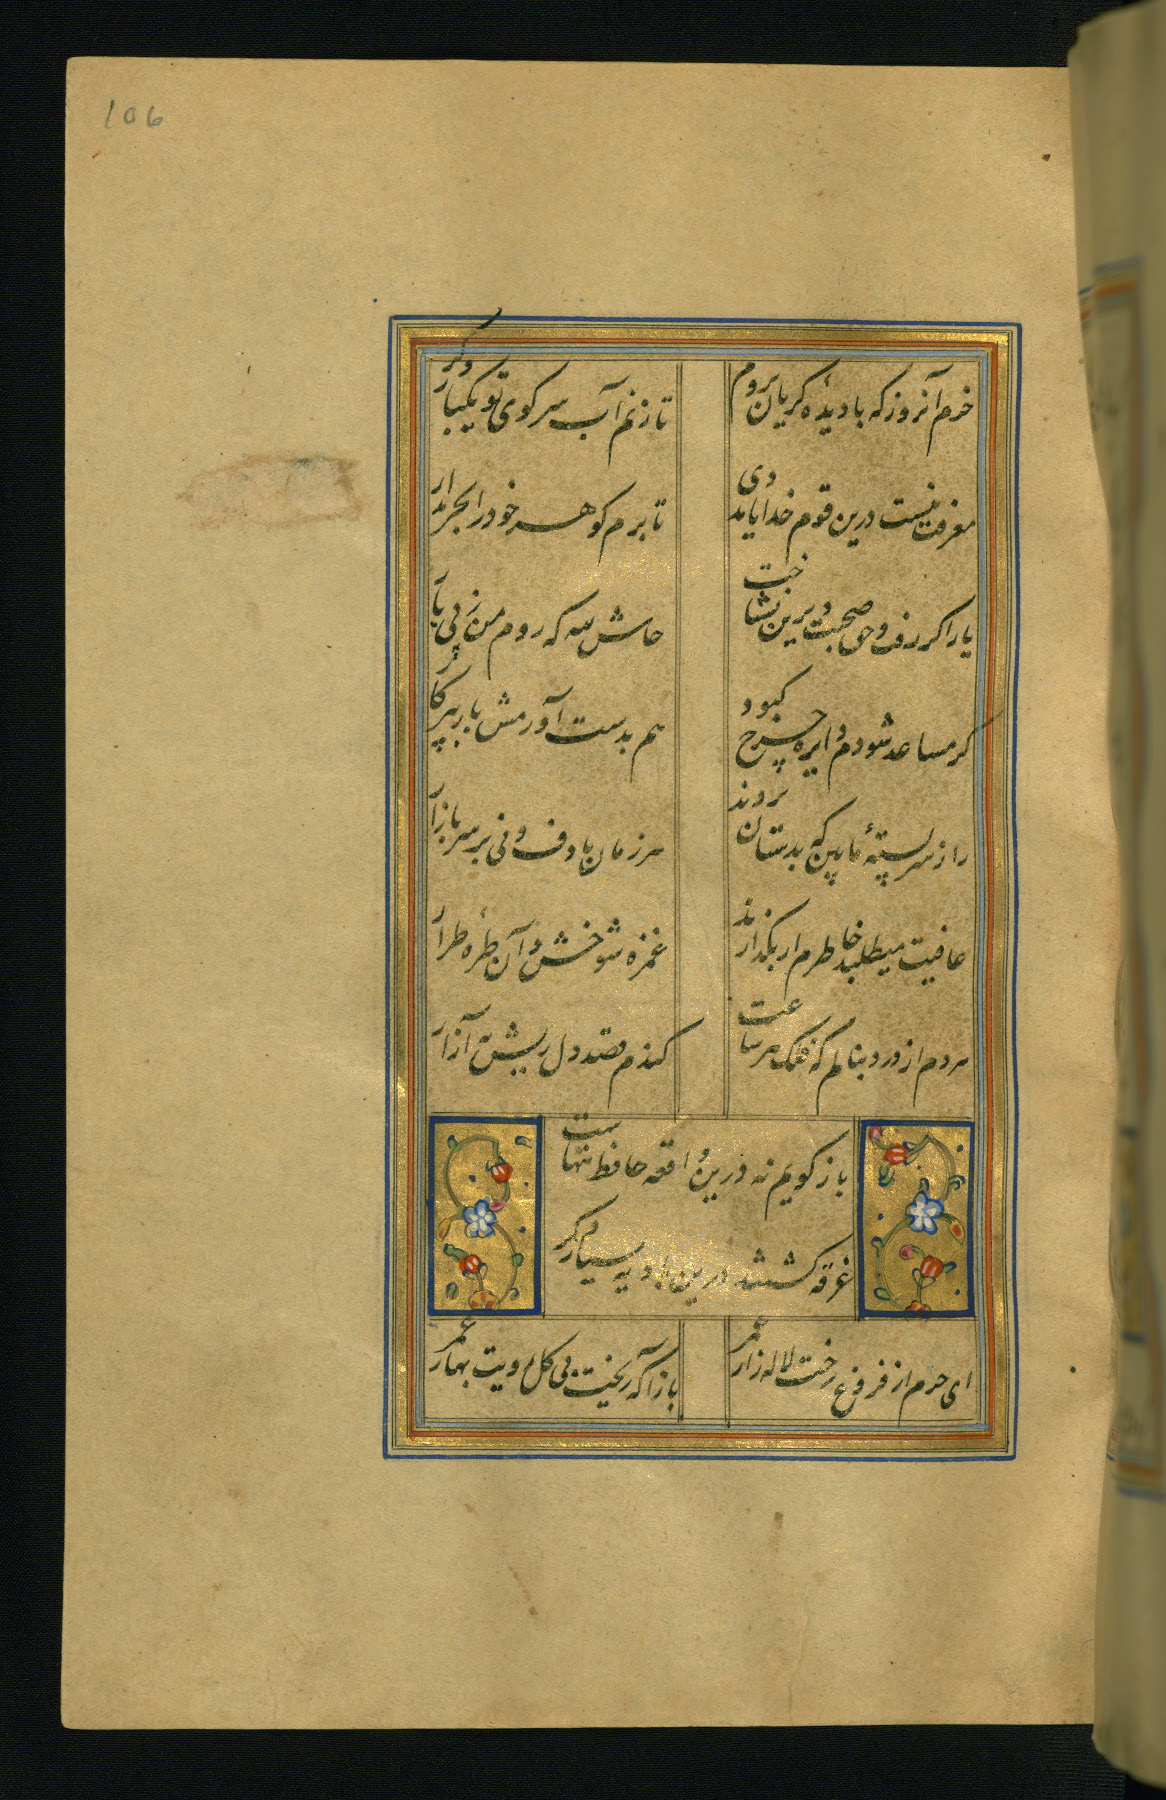 106
خرم آنروز که با دیده کریان بروم
تا زنم آب سر کوی تو یکبار دکر
معرفت نیست درین قوم خدایا مددی
تا برم کوهر خود را بخریدار
یار اکر رفت و حق صحبت دیرین نشناخت
حاش لله که روم من ز پی یار
کر مساعد شودم دایره چرخ کبود
هم بدست آورمش باز بپرکار
راز سربسته ما بین که بدستان بردند
هر زمان با دف و نی بر سر بازار
عافیت میطلبد خاطرم ار بکذارند
غمزه شوخش و آن طره طرار
هردم از درد بنالم که فلک هر ساعت
کندم قصد دل ریش به آزار
باز کویم نه درین واقعه حافظ تنهاست
غرقه کشتند درین بادیه بسیار دکر
ای خرم از فروغ رخت لاله زار عمر
باز آ که ریخت بی کل رویت بهار عمر